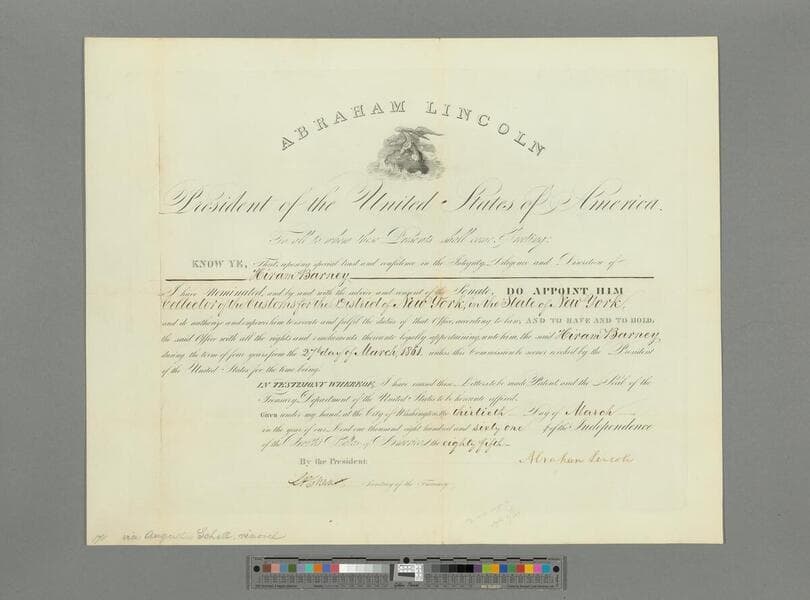 ABRAHAM LINCOLN
President of the United States of America.
To all to whom these Presents shall come, Greeting:
KNOW YE, That, reposing special trust and confidence in the Integrity, Diligence and Discretion of
Hiram Barney
I have Nominated, and by and with the advice and consent of the Senate, DO APPOINT HIM
Collector of the Customs for the District of New York, in the State of New York,
and do authorize and empower him to execute and fulfil the duties of that Office according to law; AND TO HAVE AND TO HOLD,
the said Office with all the rights and emoluments thereunto legally appertaining, unto him, the said Hiram Barney
during the term of four years from the 27th day of March, 1861, unless this Commission be sooner revoked by the President
of the United States for the time being.
IN TESTIMONY WHEREOF, I have caused these Letters to be made Patent, and the Seal of the
Treasury Department of the United States to be hereunto affixed.
Given under my hand, at the City of Washington, the thirtieth Day of March
in the year of our Lord one thousand eight hundred and sixty one & of the Independence
of the United States of America the eighty fifth
By the President:
Abraham Lincoln
S. P. Chase Secretary of the Treasury.
via August Schell, removed